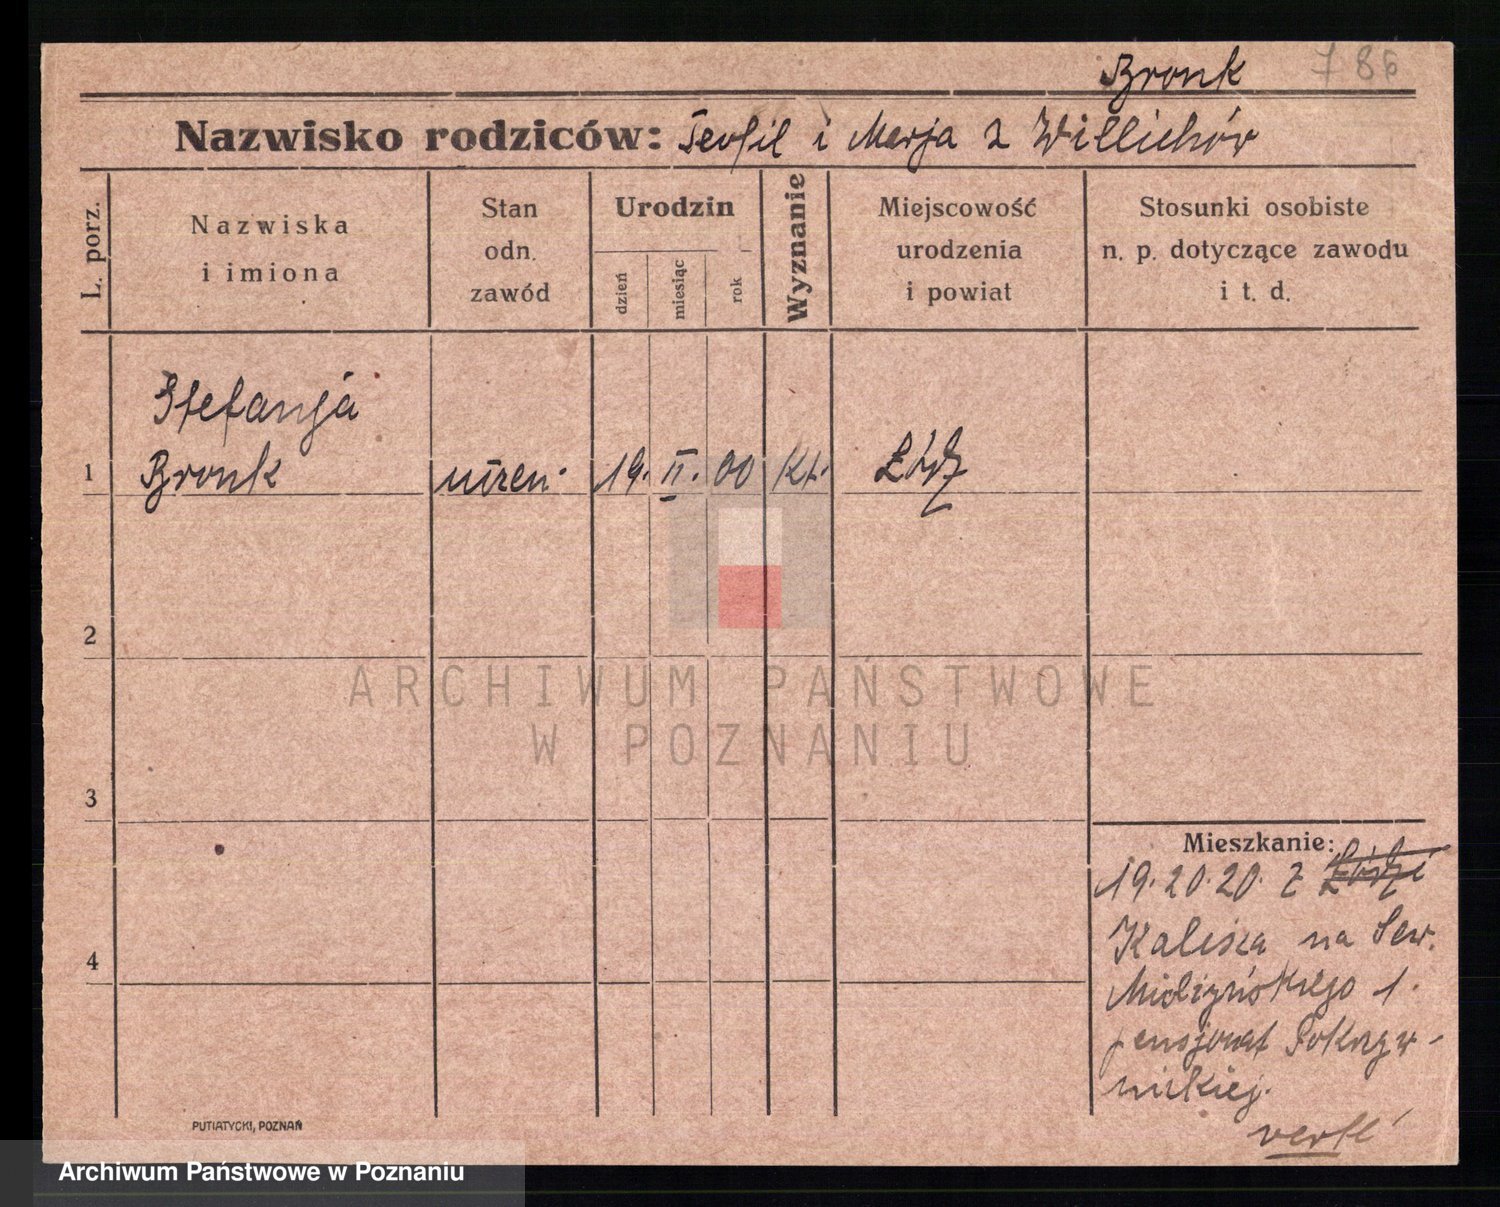 Bronk 786
Nazwisko rodziców: Teofil i Marja z Willichów
L. porz.
Nazwiska
i imiona
Stan
odn.
zawód
Urodzin
dzień
miesiąc
rok
Wyznanie
Miejscowość
urodzenia
i powiat
Stosunki osobiste
n. p. dotyczące zawodu
i t. d.
Stefanja
1 Bronk uczen. 19. II. 00 Kt. Łódź
2
3
4
Mieszkanie:
19.20.20. z Łódzi
Kalisza na Sew.
Mielżyńskiego 1.
pensjonat
nickiej.
ARCHIWUM PAŃSTWOWE
W POZNANIU
PUTIATYCKI, POZNAŃ
Archiwum Państwowe w Poznaniu